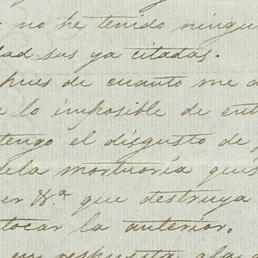 no he tenido ningu
dad sus ya citadas.
pues de cuanto me
lo imposible de ent
tengo el disgusto de
ela mortuoria quis
er 8.ª que destruya
tocar la anterior.
en respuesta a la